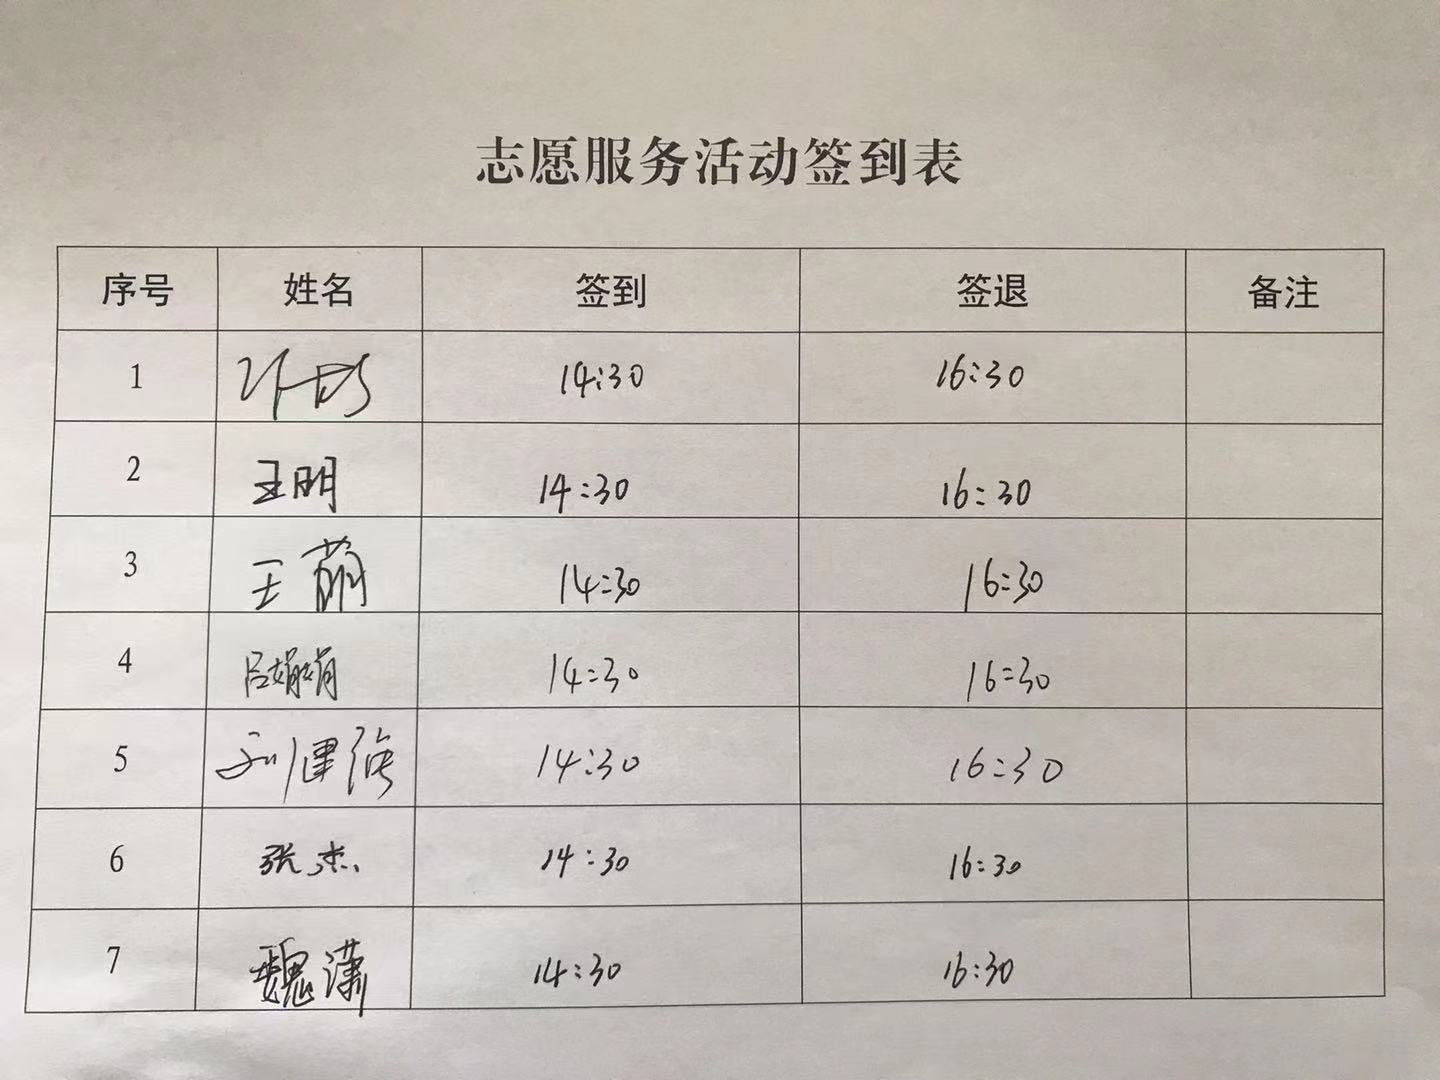 志愿服务活动签到表
序号 姓名 签到 签退 备注
1 14:30 16:30
2 王明 14:30 16:30
3 王萌 14:30 16:30
4 吕娟娟 14:30 16:30
5 刘建强 14:30 16:30
6 张杰 14:30 16:30
7 魏潇 14:30 16:30